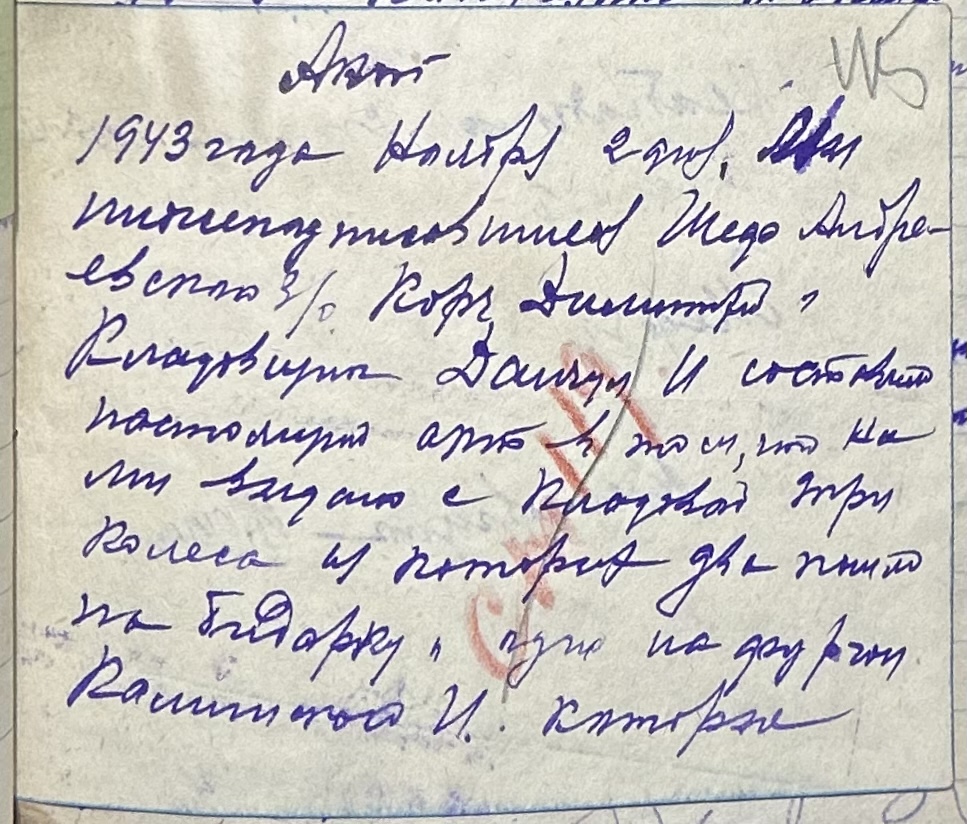 Акт
№5
1943 года Ноября 2 дня. Мы
нижеподписавшиеся Шедо Андре-
евского з/о Корж Дмитрий и
Кладовщик И составили
настоящий акт в том, что на
ми выдано с Кладовой три
колеса из которых два пошло
на Бидарку и одно на фургон
И. которые